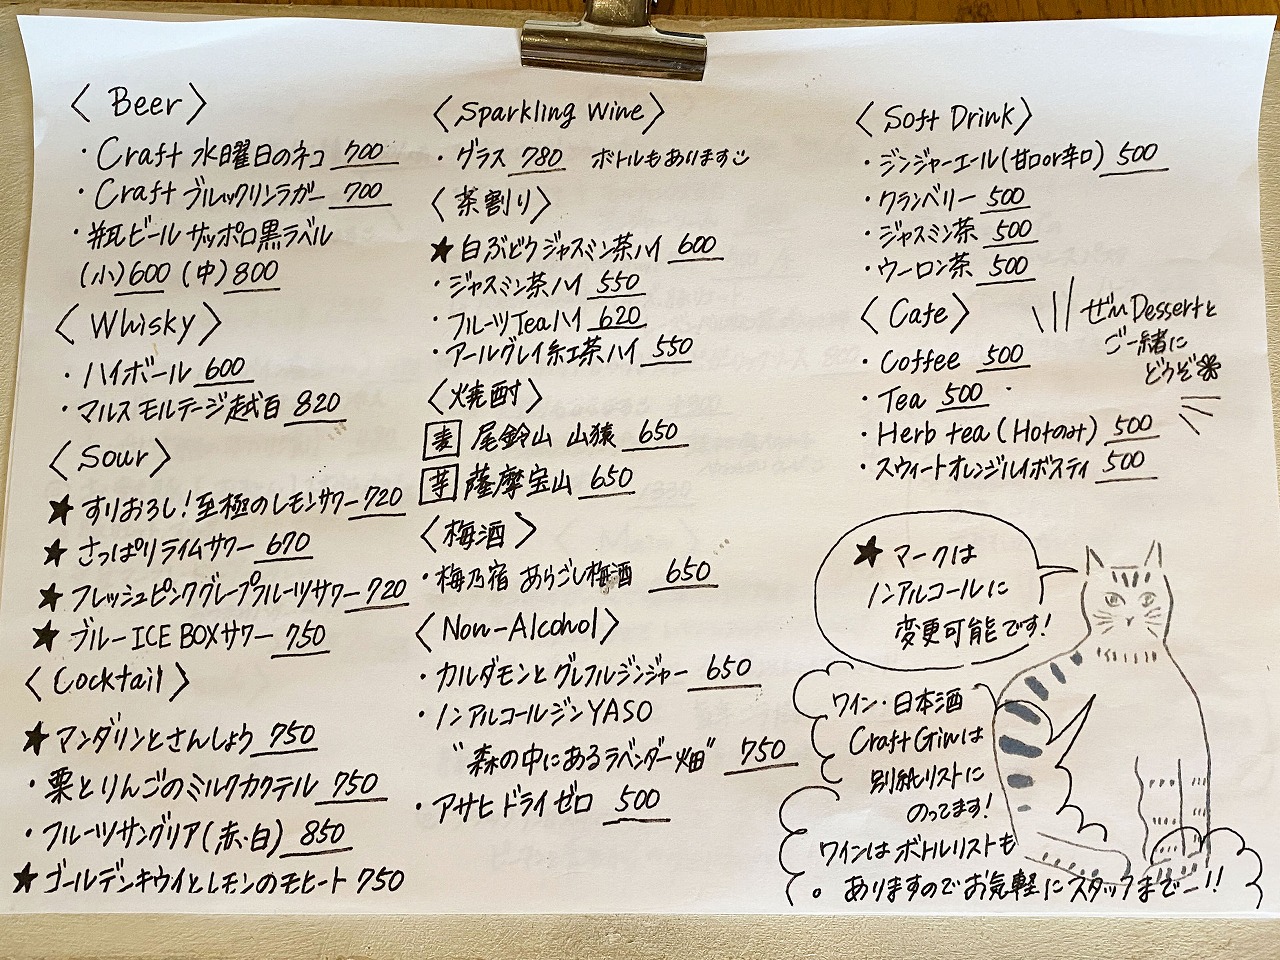 〈 Beer 〉
・Craft 水曜日のネコ 700
・Craft ブルックリンラガー 700
・瓶ビール サッポロ黒ラベル
(小)600 (中)800
〈 Whisky 〉
・ハイボール 600
・マルス モルテージ越百 820
〈 Sour 〉
★すりおろし!至極のレモンサワー 720
★さっぱりライムサワー 670
★フレッシュピンクグレープフルーツサワー 720
★ブルーICE BOXサワー 750
〈 Cocktail 〉
★マンダリンとさんしょう 750
・栗とりんごのミルクカクテル 750
・フルーツサングリア(赤・白) 850
★ゴールデンキウイとレモンのモヒート 750
〈 Sparkling Wine 〉
・グラス 780 ボトルもあります
〈 茶割り 〉
★白ぶどうジャスミン茶ハイ 600
・ジャスミン茶ハイ 550
・フルーツTeaハイ 620
・アールグレイ紅茶ハイ 550
〈 焼酎 〉
麦 尾鈴山 山猿 650
芋 薩摩宝山 650
〈 梅酒 〉
・梅乃宿 あらごし梅酒 650
〈 Non-Alcohol 〉
・カルダモンとグレフルジンジャー 650
・ノンアルコールジンYASO
"森の中にあるラベンダー畑" 750
・アサヒ ドライゼロ 500
〈 Soft Drink 〉
・ジンジャーエール(甘口or辛口) 500
・クランベリー 500
・ジャスミン茶 500
・ウーロン茶 500
〈 Cafe 〉
・Coffee 500
・Tea 500
・Herb tea (Hotのみ) 500
・スウィートオレンジルイボスティ 500
ぜひDessertと
ご一緒に
どうぞ
★マークは
ノンアルコールに
変更可能です!
ワイン・日本酒
Craft Ginは
別紙リストに
のってます!
ワインはボトルリストも
ありますのでお気軽にスタッフまでー!!